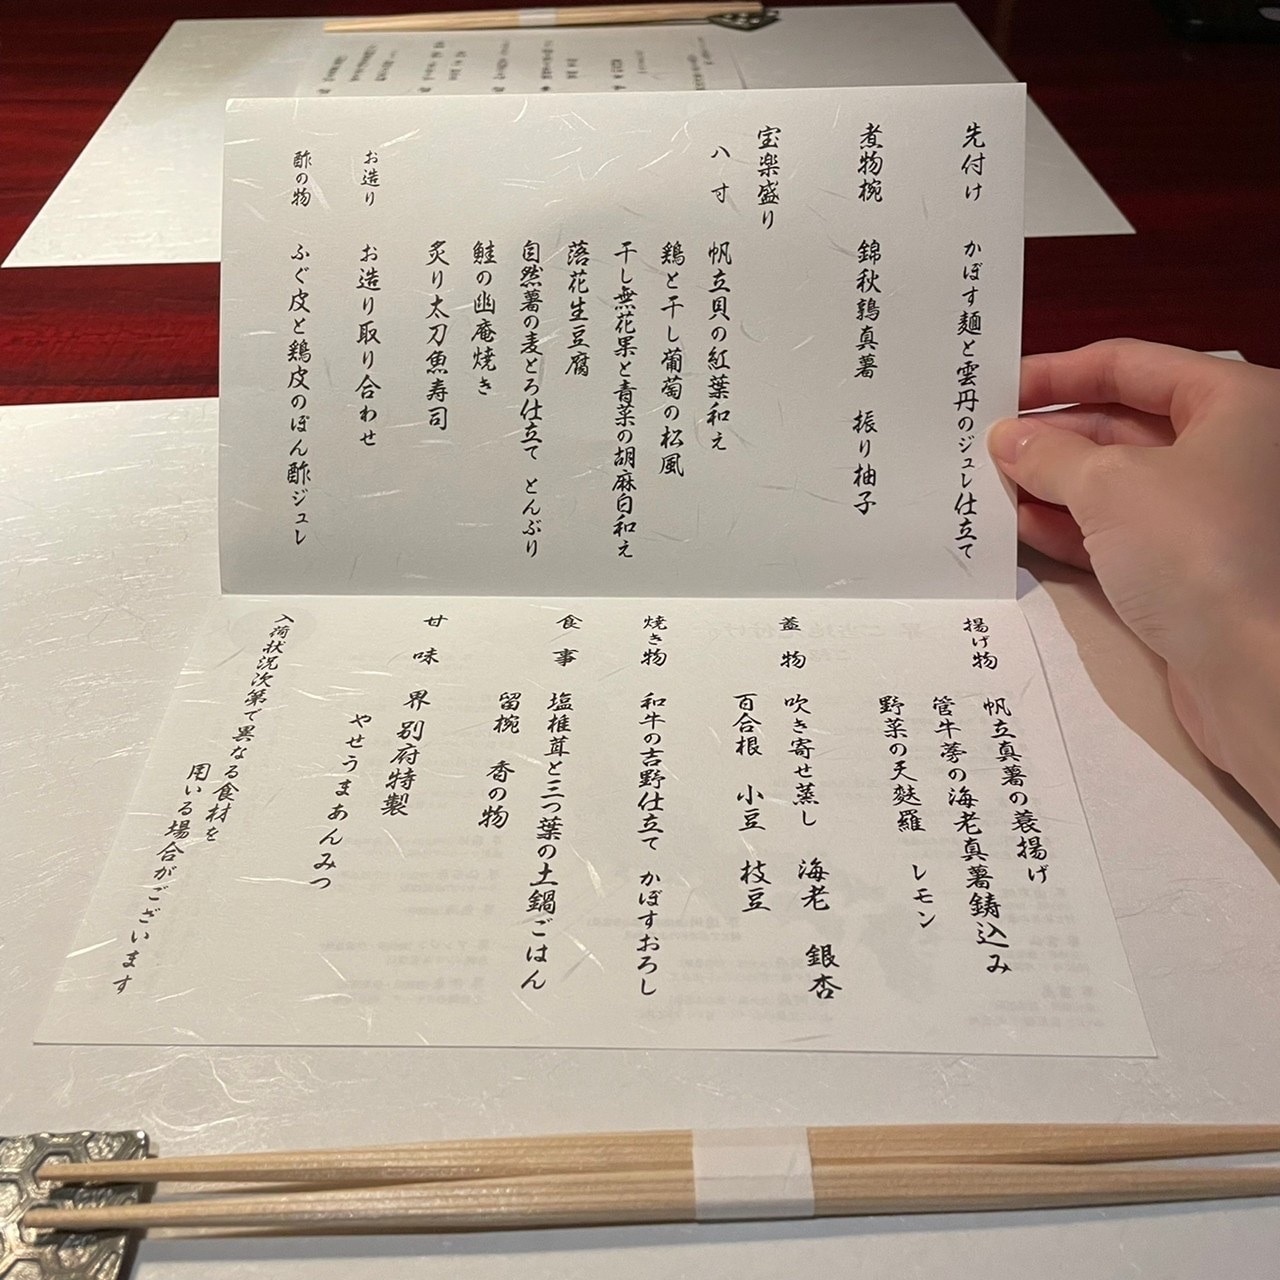 先付け かぼす麺と雲丹のジュレ仕立て
煮物椀 錦秋鶉真薯 振り柚子
宝楽盛り
八寸 帆立貝の紅葉和え
鶏と干し葡萄の松風
干し無花果と青菜の胡麻白和え
落花生豆腐
自然薯の麦とろ仕立て とんぶり
鮭の幽庵焼き
炙り太刀魚寿司
お造り お造り取り合わせ
酢の物 ふぐ皮と鶏皮のぽん酢ジュレ
揚げ物 帆立真薯の蓑揚げ
管牛蒡の海老真薯鋳込み
野菜の天麩羅 レモン
蓋物 吹き寄せ蒸し 海老 銀杏
百合根 小豆 枝豆
焼き物 和牛の吉野仕立て かぼすおろし
食事 塩椎茸と三つ葉の土鍋ごはん
留椀 香の物
甘味 界 別府特製
やせうまあんみつ
入荷状況次第で異なる食材を
用いる場合がございます